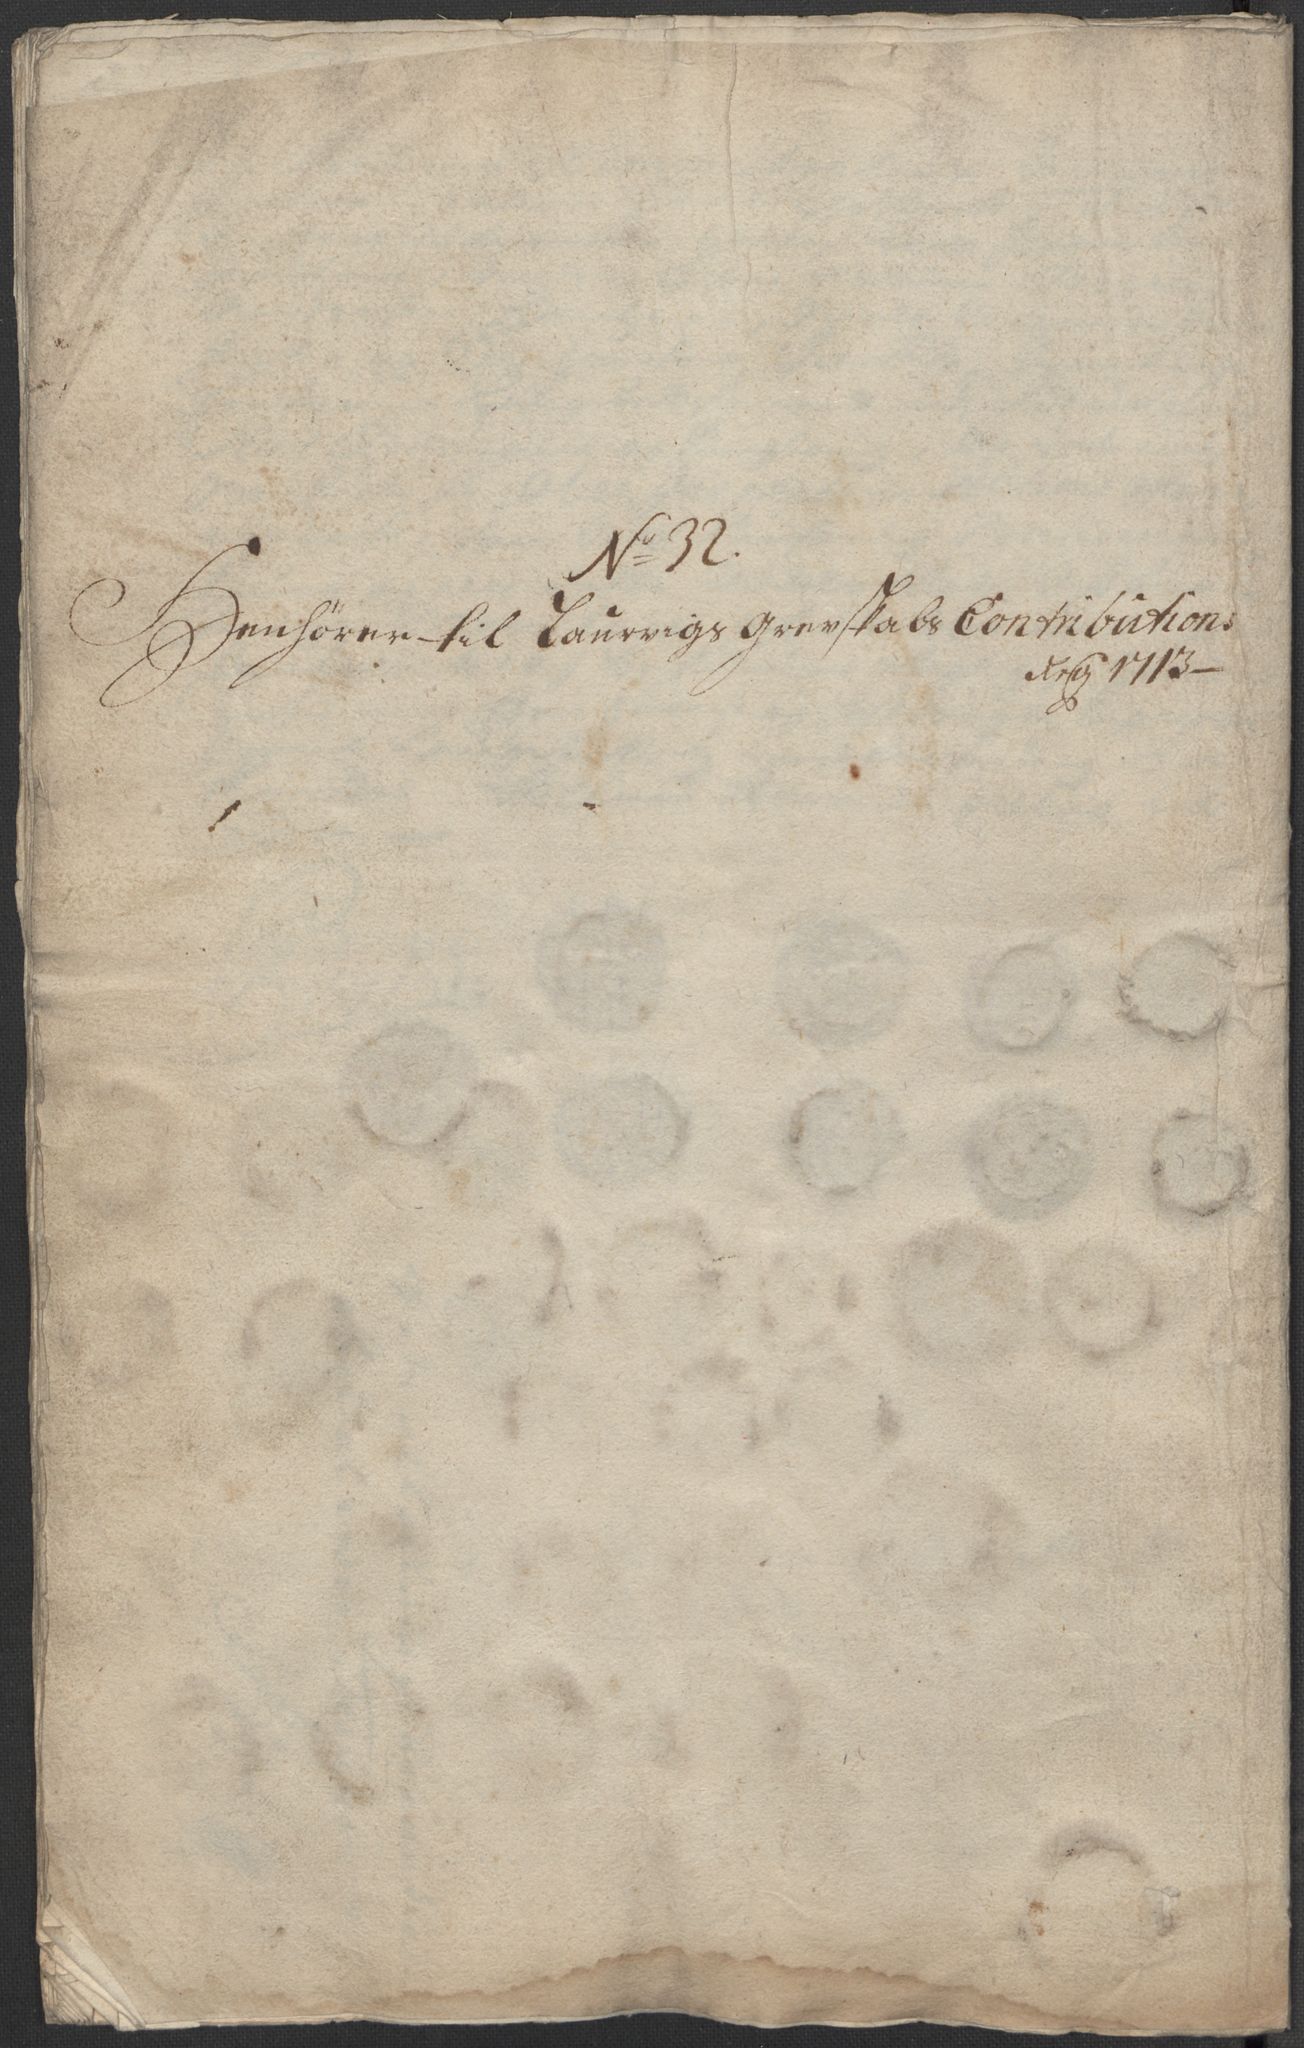 No 32.
Henhörer til Laurvigs Grevskabs Contributions
Reg 1713